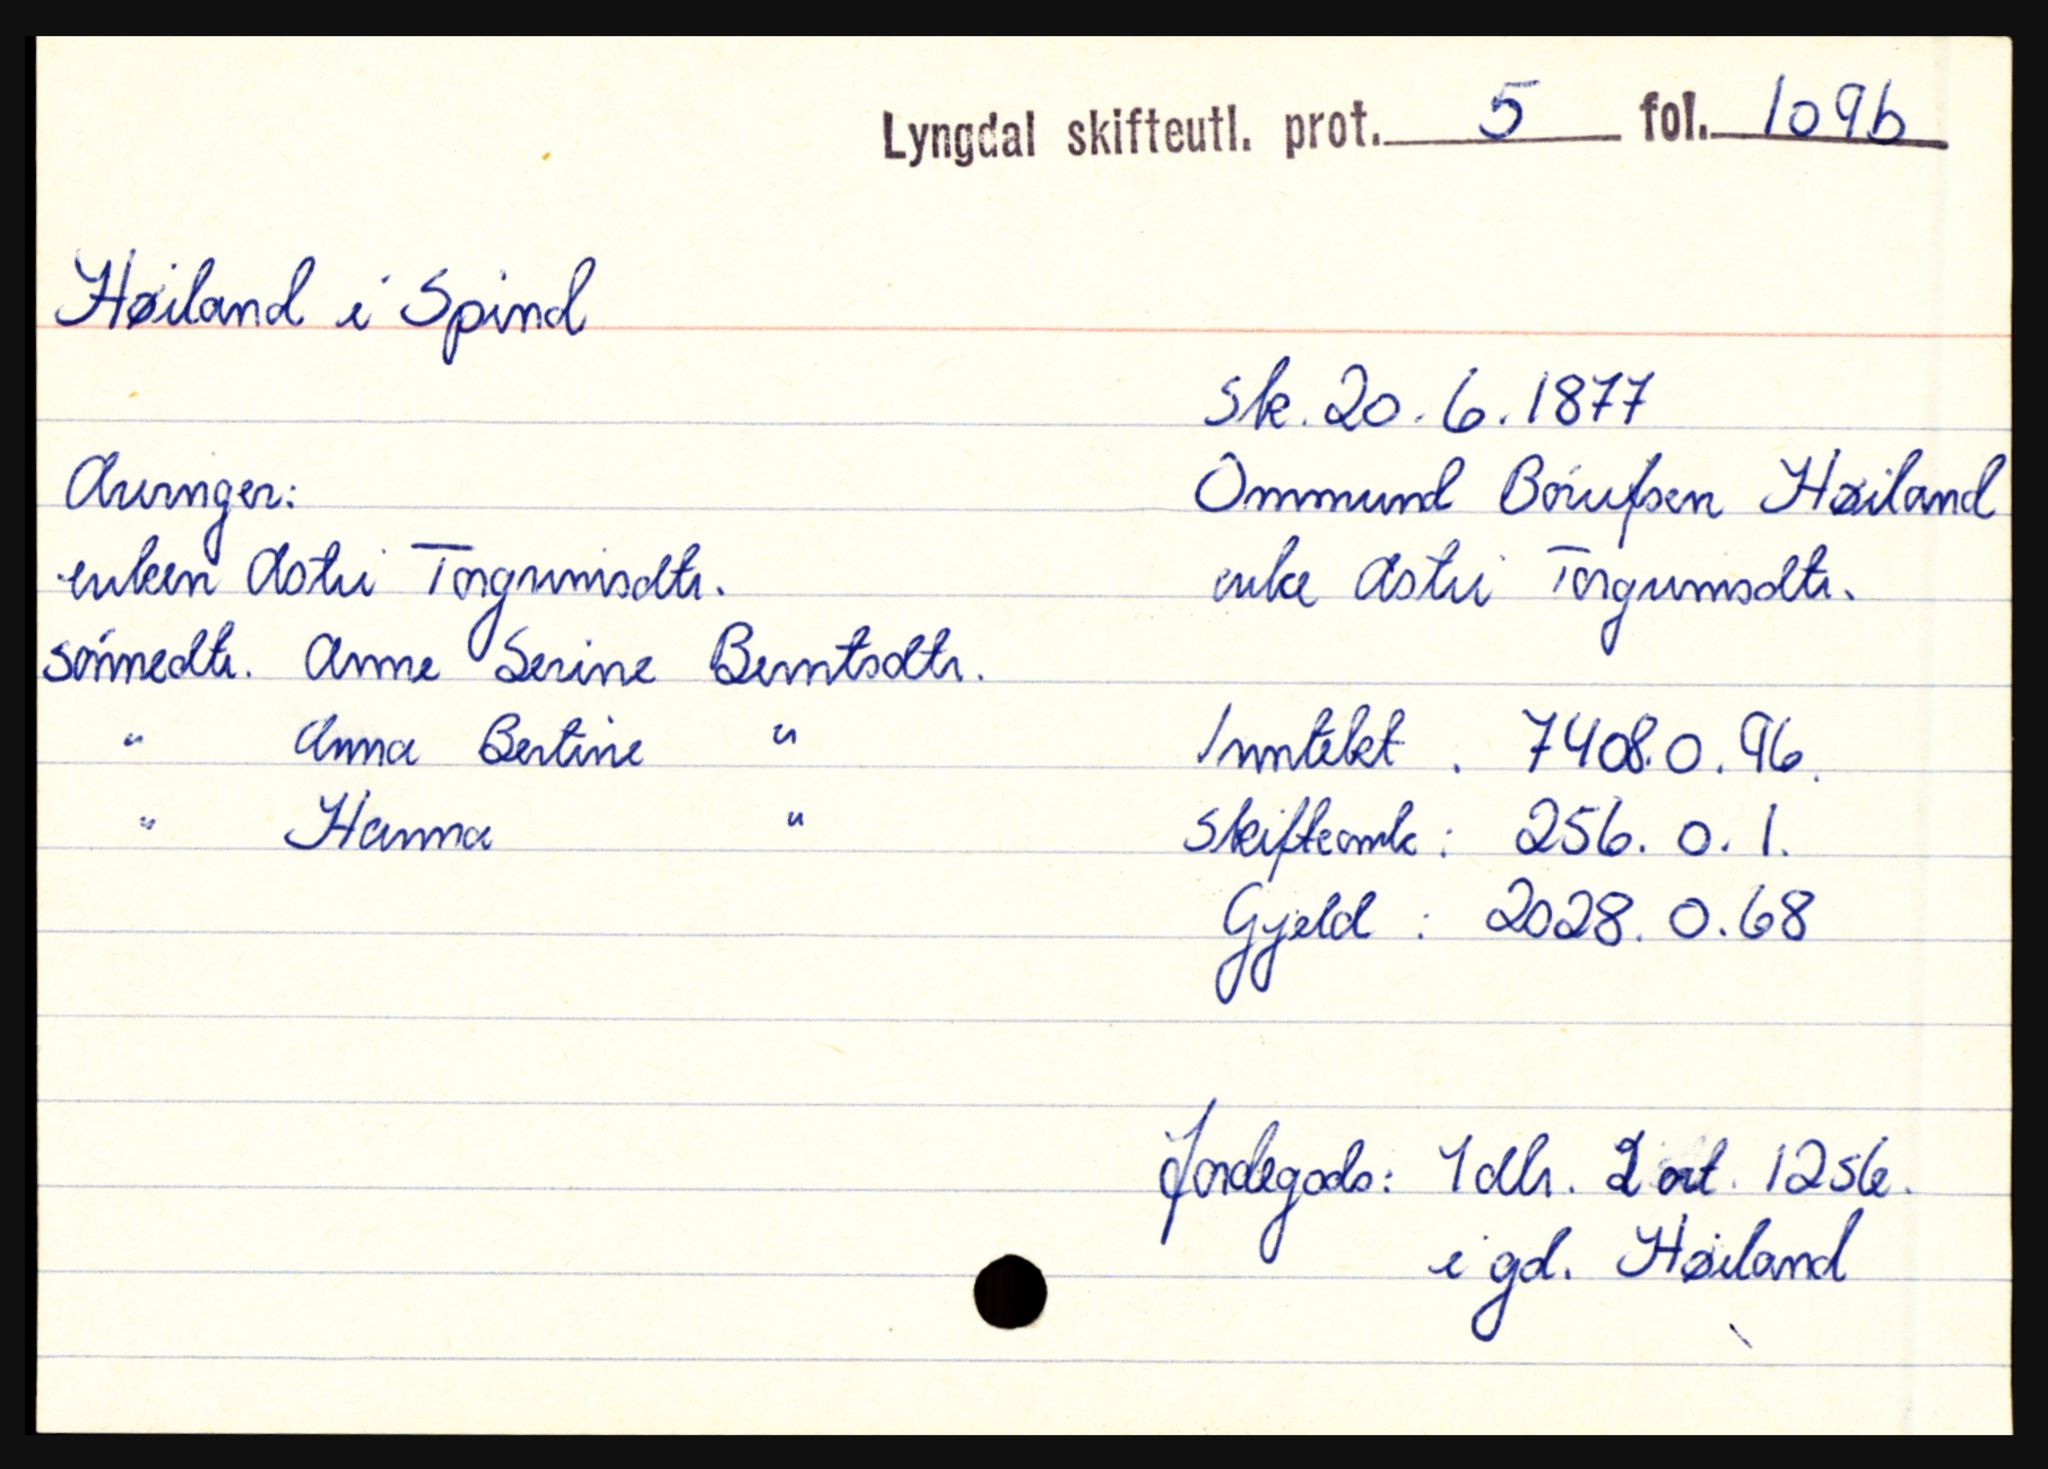 Lyngdal skifteutl. prot. 5 fol. 109b
Høiland i Spind
sk. 20.6.1877
Arvinger:
enken Astri Torgrimsdtr.
sönnedtr. Anne Serine Berntsdtr.
" Anna Bertine "
" Hanna "
Ommund Börufsen Høiland
enke Astri Torgrimsdtr.
Inntekt . 7408.0.96.
Skifteomk : 256.0.1.
Gjeld : 2028.0.68
Jordegods: 1 dlr. 2 ort. 12 sk.
i gd. Høiland